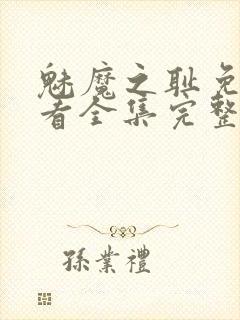 魅魔之耻免
看全集完整
孫業禮